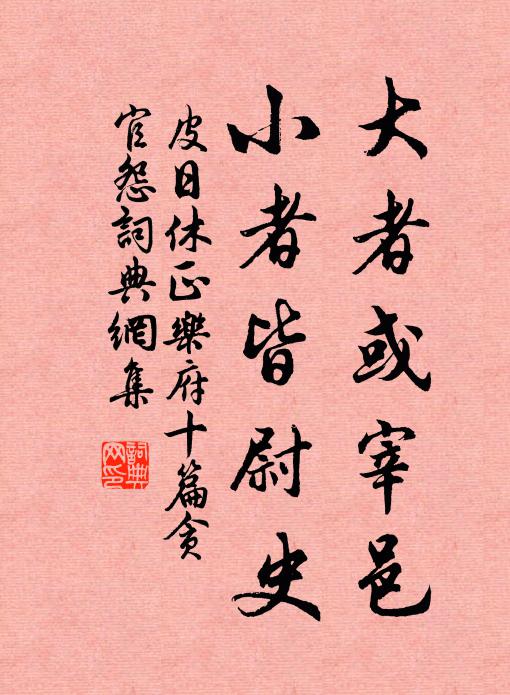 大者或宰邑
小者皆尉史
皮日休正樂府十篇貪
官怨詞典網集
詞典网印